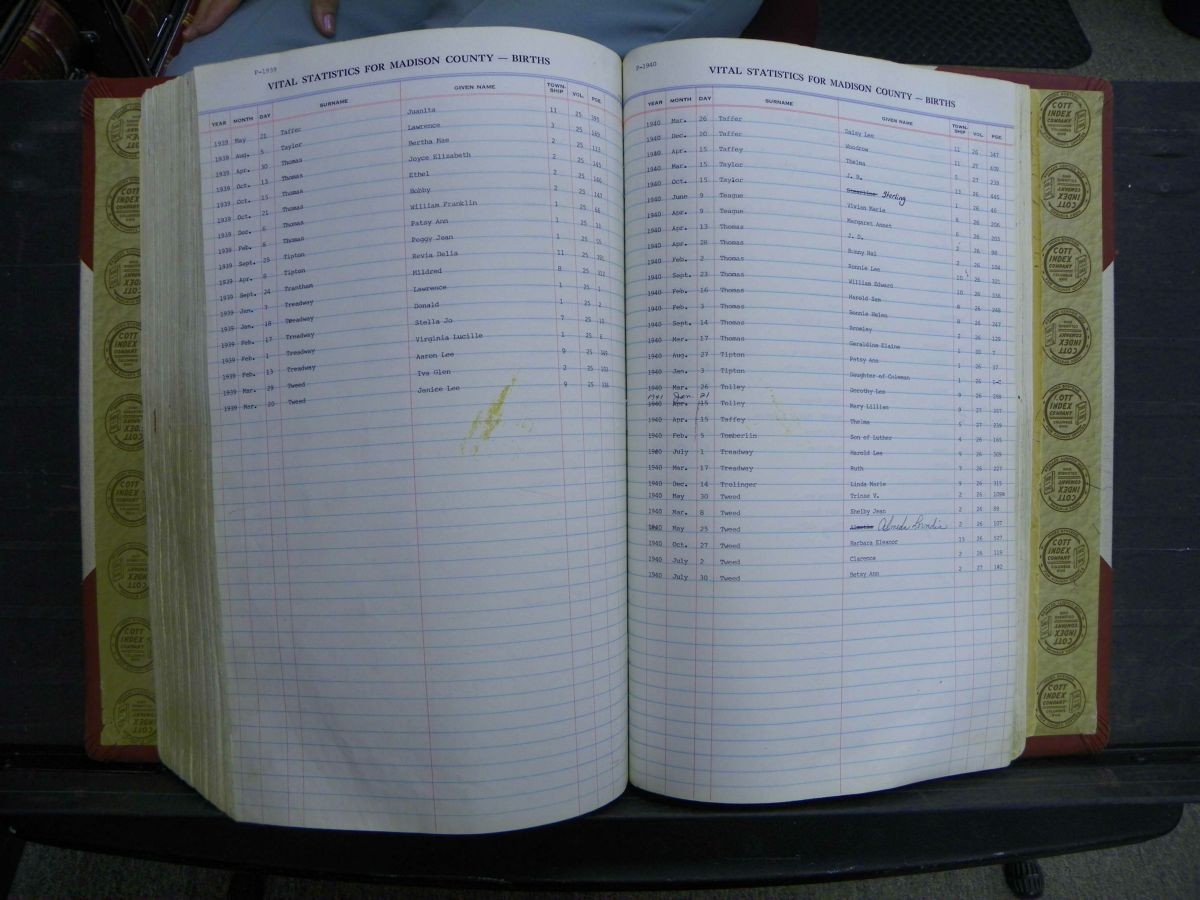 P-1939
VITAL STATISTICS FOR MADISON COUNTY — BIRTHS
YEAR MONTH DAY SURNAME GIVEN NAME TOWN-SHIP VOL. PGE.
1939 May 21 Taffer Juanita 11 25
1939 Aug. 5 Taylor Lawrence 3 25
1939 Apr. 30 Thomas Bertha Mae 2 25 113
1939 Oct. 13 Thomas Joyce Elizabeth 2 25
1939 Oct. 15 Thomas Ethel 2 25
1939 Oct. 21 Thomas Bobby 2 25 147
1939 Dec. 6 Thomas William Franklin 1 25
1939 Feb. 6 Thomas Patsy Ann 1 25
1939 Sept. 25 Tipton Peggy Jean 1 25
1939 Apr. 8 Tipton Revia Delia 11 25
1939 Sept. 24 Trantham Mildred 8 25
1939 Jan. 3 Treadway Lawrence 1 25
1939 Jan. 18 Treadway Donald 1 25 2
1939 Feb. 17 Treadway Stella Jo 7 25
1939 Feb. 1 Treadway Virginia Lucille 1 25
1939 Feb. 13 Treadway Aaron Lee 9 25
1939 Mar. 29 Tweed Iva Glen 2 25
1939 Mar. 20 Tweed Janice Lee 9 25
P-1940
VITAL STATISTICS FOR MADISON COUNTY — BIRTHS
YEAR MONTH DAY SURNAME GIVEN NAME TOWN-SHIP VOL. PGE.
1940 Mar. 26 Taffer Daisy Lee 11 26 347
1940 Dec. 20 Taffer Woodrow 11 27
1940 Apr. 15 Taffey Thelma 5 27 239
1940 Mar. 15 Taylor J. B. 11 26 345
1940 Oct. 15 Taylor Sterling 1 26
1940 June 9 Teague Vivian Marie 6 26 206
1940 Apr. 9 Teague Margaret Annet 6 26 203
1940 Apr. 13 Thomas J. D. 2 26 98
1940 Apr. 28 Thomas Bonny Hal 2 26
1940 Feb. 2 Thomas Bonnie Lee 10 26 321
1940 Sept. 23 Thomas William Edward 10 26
1940 Feb. 16 Thomas Harold Zen 8 26
1940 Feb. 3 Thomas Bonnie Helen 8 26 247
1940 Sept. 14 Thomas 2 26 129
1940 Mar. 17 Thomas Geraldine Elaine 1
1940 Aug. 27 Tipton Patsy Ann 1 26 17
1940 Jan. 3 Tipton Daughter of Coleman 1 26
1940 Mar. 26 Tolley Dorothy Lee 9 26
1941 Jan. 21
1940 Apr. 15 Tolley Mary Lillian 9 27
1940 Apr. 15 Taffey Thelma 5 27 239
1940 Feb. 5 Tomberlin Son of Luther 4 26 165
1940 July 1 Treadway Harold Lee 9 26 309
1940 Mar. 17 Treadway Ruth 7 26 227
1940 Dec. 14 Trolinger Linda Marie 9 26 315
1940 May 30 Tweed Trinse V. 2 26 109
1940 Mar. 8 Tweed Shelby Jean 2 26 89
1940 May 25 Tweed 2 26 107
1940 Oct. 27 Tweed Barbara Eleanor 15 26 527
1940 July 2 Tweed Clarence 2 26 119
1940 July 30 Tweed Betsy Ann 2 27 142
COTT INDEX COMPANY
COTT INDEX COMPANY
COTT INDEX COMPANY
COTT INDEX COMPANY
COTT INDEX COMPANY
COTT INDEX COMPANY
COTT INDEX COMPANY
COTT INDEX COMPANY